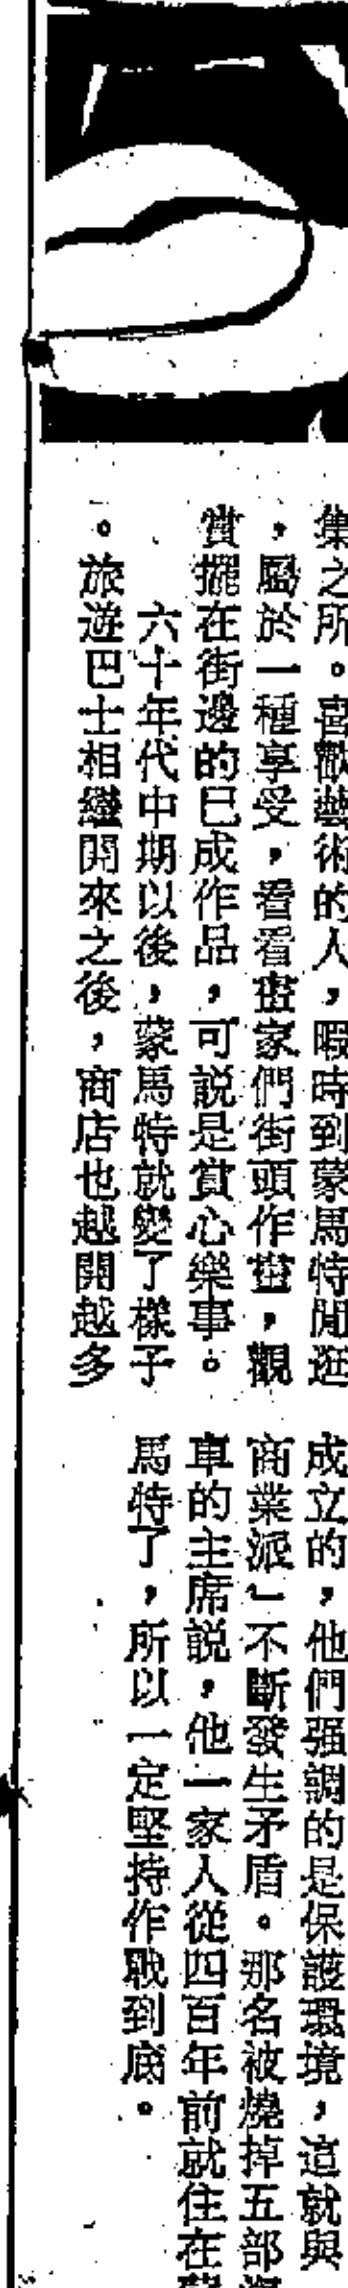 集之所。喜歡藝術的人，暇時到蒙馬特閒逛
，屬於一種享受，看看畫家們街頭作畫，觀
賞擺在街邊的已成作品，可説是賞心樂事。
六十年代中期以後，蒙馬特就變了樣子
。旅遊巴士相繼開來之後，商店也越開越多
成立的，他們强調的是保護環境，這就與
商業派」不斷發生矛盾。那名被燒掉五部
車的主席説，他一家人從四百年前就住在
馬特了，所以一定堅持作戰到底。